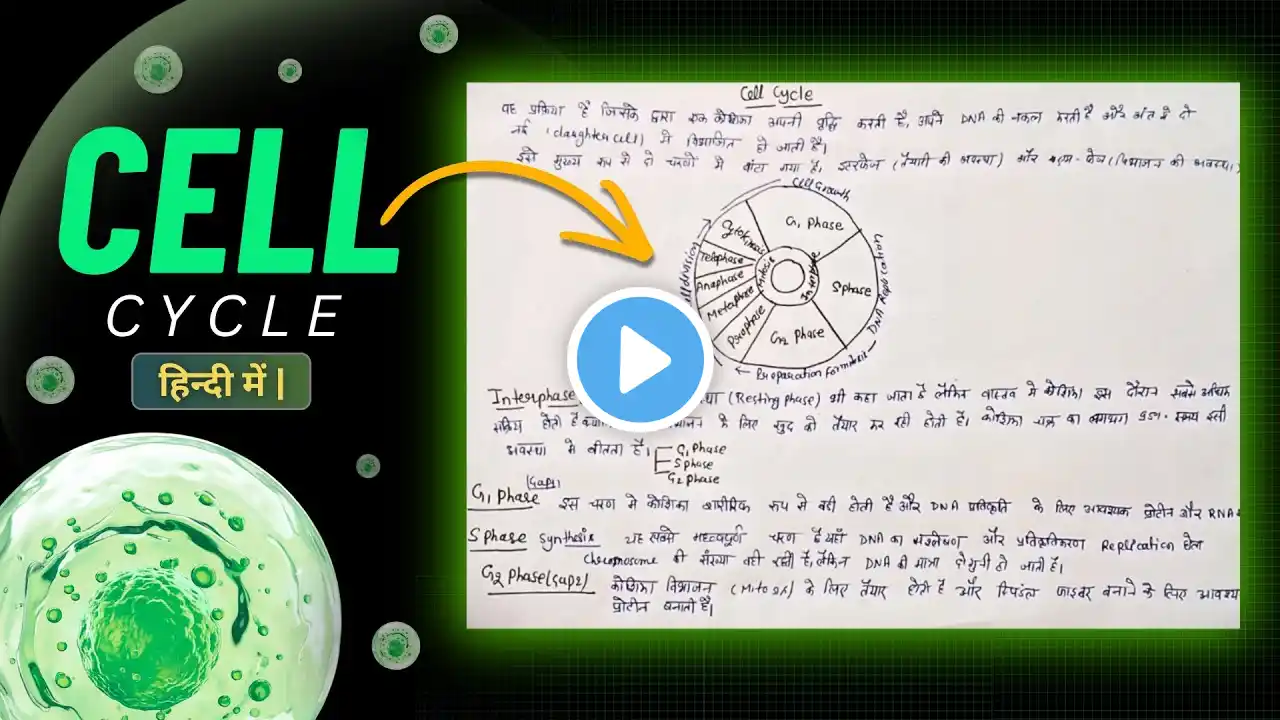 CELL
CYCLE
हिन्दी में |
Cell Cycle
वह प्रक्रिया है जिसके द्वारा एक कोशिका अपनी वृद्धि करती है, अपने DNA की नकल करती है और अंत में दो
नई (daughter cell) में विभाजित हो जाती है।
इसे मुख्य रूप से दो चरणों में बांटा गया है। इंटरफेज (तैयारी की अवस्था) और एम-फेज (विभाजन की अवस्था)
Cell Growth
G1 phase
Cytokinesis
Telophase
Anaphase
Metaphase
Prophase
Mitosis
Interphase
S phase
G2 phase
DNA Replication
Cell division
Preparation Formitosis
Interphase (Resting phase) भी कहा जाता है लेकिन वास्तव में कोशिका इस दौरान सबसे अधिक
सक्रिय होती है के लिए खुद को तैयार कर रही होती है। कोशिका चक्र का लगभग 95% समय इसी
अवस्था में बीतता है।
G1 phase
S phase
G2 phase
(Gap1)
G1 Phase इस चरण में कोशिका शारीरिक रूप से बड़ी होती है और DNA प्रतिकृति के लिए आवश्यक प्रोटीन और RNA
S Phase Synthesis यह सबसे महत्वपूर्ण चरण है यहाँ DNA का संश्लेषण और प्रतिकृतिकरण Replication होता
Chromosome की संख्या वही रहती है, लेकिन DNA की मात्रा दोगुनी हो जाती है।
G2 Phase (Gap2) कोशिका विभाजन (Mitosis) के लिए तैयार होती है और स्पिंडल फाइबर बनाने के लिए आवश्य
प्रोटीन बनाती है।